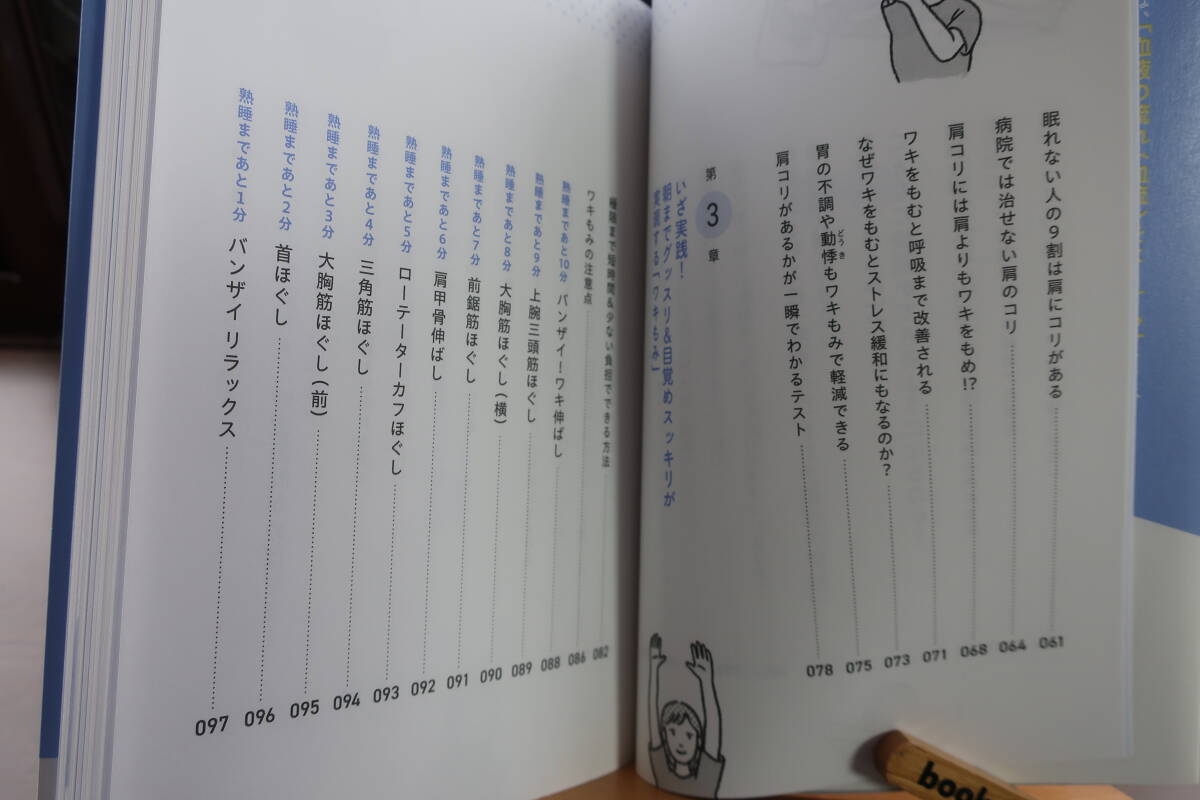 眠れない人の9割は肩にコリがある 061
病院では治せない肩のコリ 064
肩コリには肩よりもワキをもめ!? 068
ワキをもむと呼吸まで改善される 071
なぜワキをもむとストレス緩和にもなるのか? 073
胃の不調や動悸もワキもみで軽減できる 075
どうき
肩コリがあるかが一瞬でわかるテスト 078
第3章
いざ実践!
朝までグッスリ&目覚めスッキリが
実現する「ワキもみ」
極限まで短時間&少ない負担でできる方法 082
ワキもみの注意点 086
熟睡まであと10分 バンザイ!ワキ伸ばし 088
熟睡まであと9分 上腕三頭筋ほぐし 089
熟睡まであと8分 大胸筋ほぐし(横) 090
熟睡まであと7分 前鋸筋ほぐし 091
熟睡まであと6分 肩甲骨伸ばし 092
熟睡まであと5分 ローテーターカフほぐし 093
熟睡まであと4分 三角筋ほぐし 094
熟睡まであと3分 大胸筋ほぐし(前) 095
熟睡まであと2分 首ほぐし 096
熟睡まであと1分 バンザイ リラックス 097
book